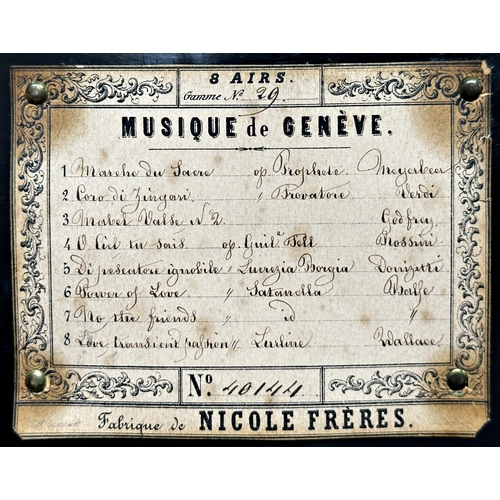 8 AIRS.
Gamme No. 29.
MUSIQUE de GENÈVE.
1 Marche du Sacre op. Prophete. Meyerbeer
2 Coro di Zingari. " Trovatore Verdi
3 Mabel Valse No 2 Godfrey
4 O Ciel tu sais op. Guil. Tell Rossini
5 Di pescatore ignobile " Lucrezia Borgia Donizetti
6 Power of Love. " Satanella Balfe
7 No the friends " id "
8 Love transient passion " Lurline Wallace
No. 40144
Fabrique de NICOLE FRÈRES.